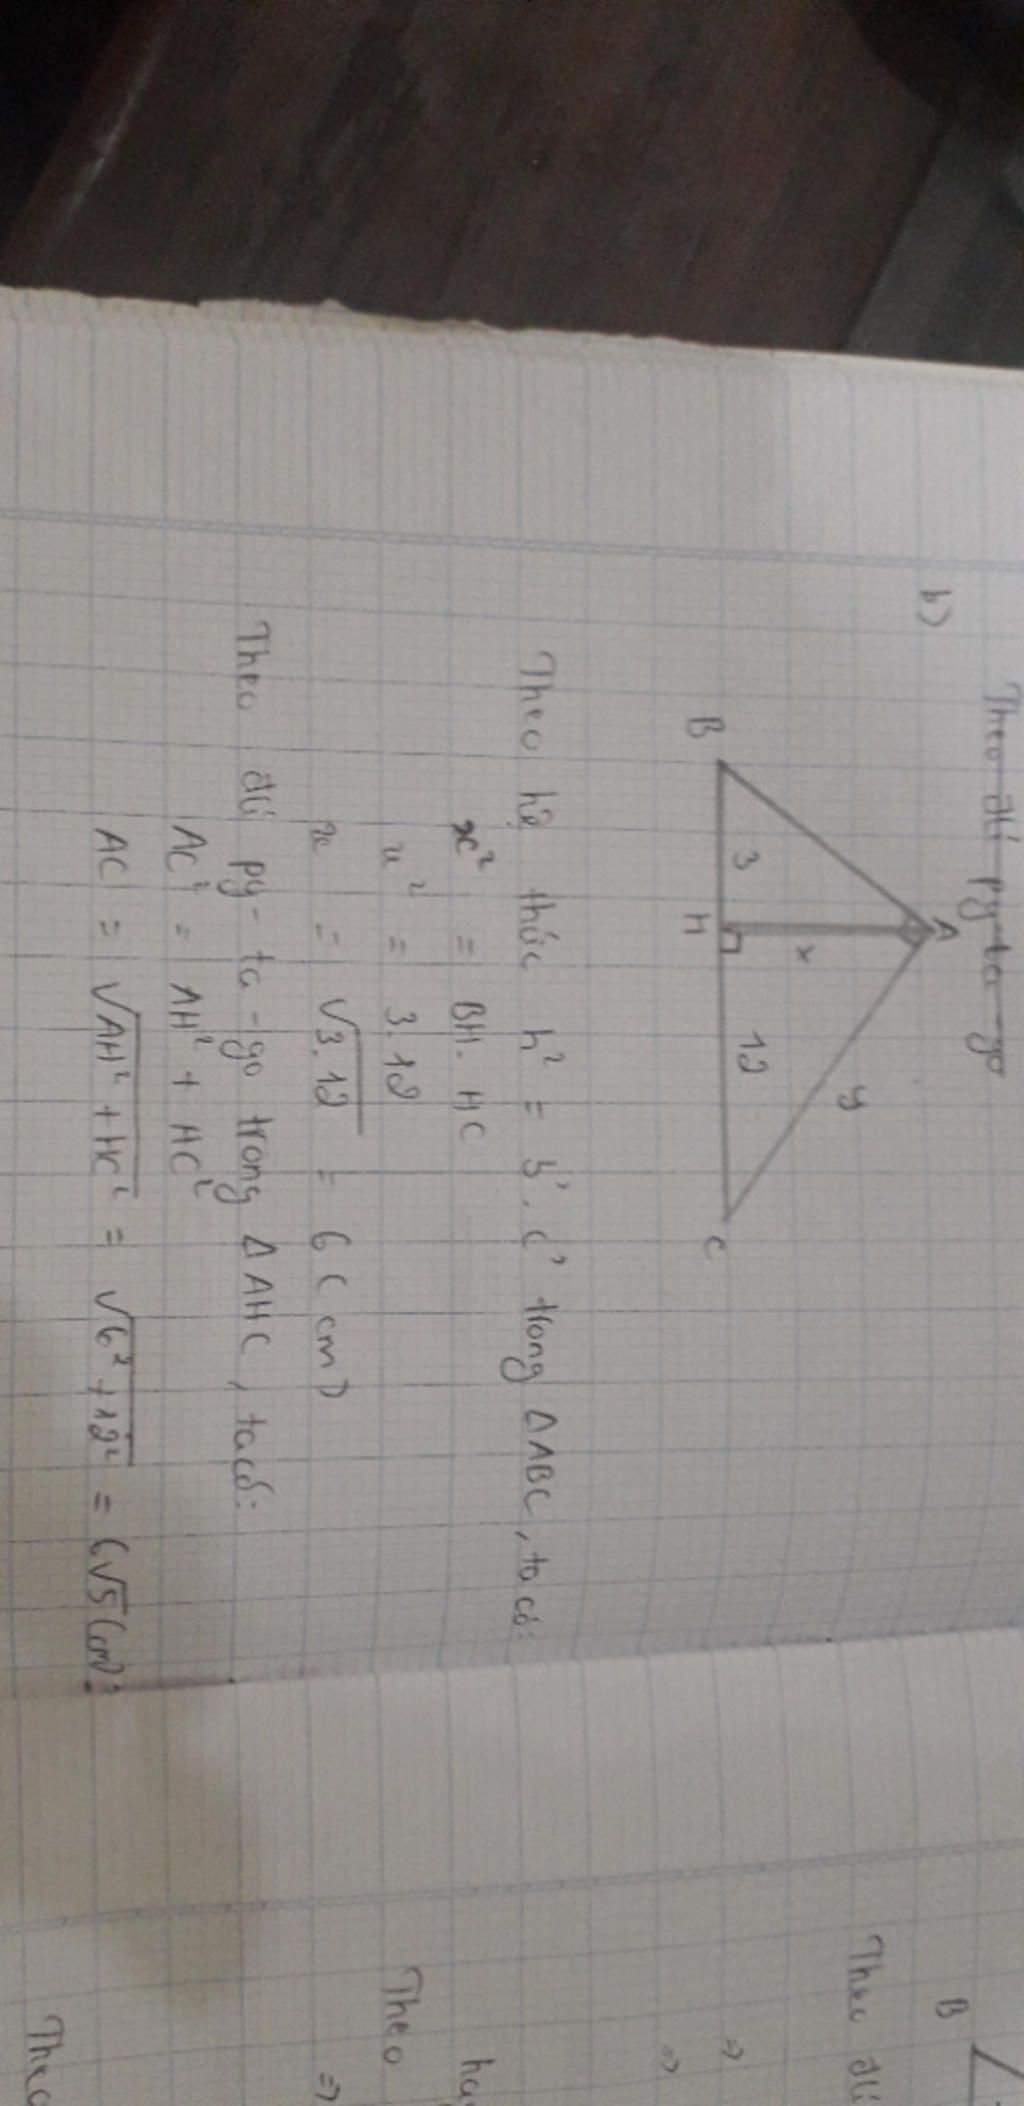 Theo đlí py-ta-go
b)
A
x
y
3
12
B
H
C
Theo hệ thức h² = b'. c' trong Δ ABC, ta có:
x² = BH. HC
x² = 3.12
x = √3.12 = 6 (cm)
Theo đlí py-ta-go trong Δ AHC, ta có:
AC² = AH² + HC²
AC = √AH² + HC² = √6² + 12² = 6√5 (cm)
B
Theo đlí
⇒
⇒
ha
Theo
⇒
Theo